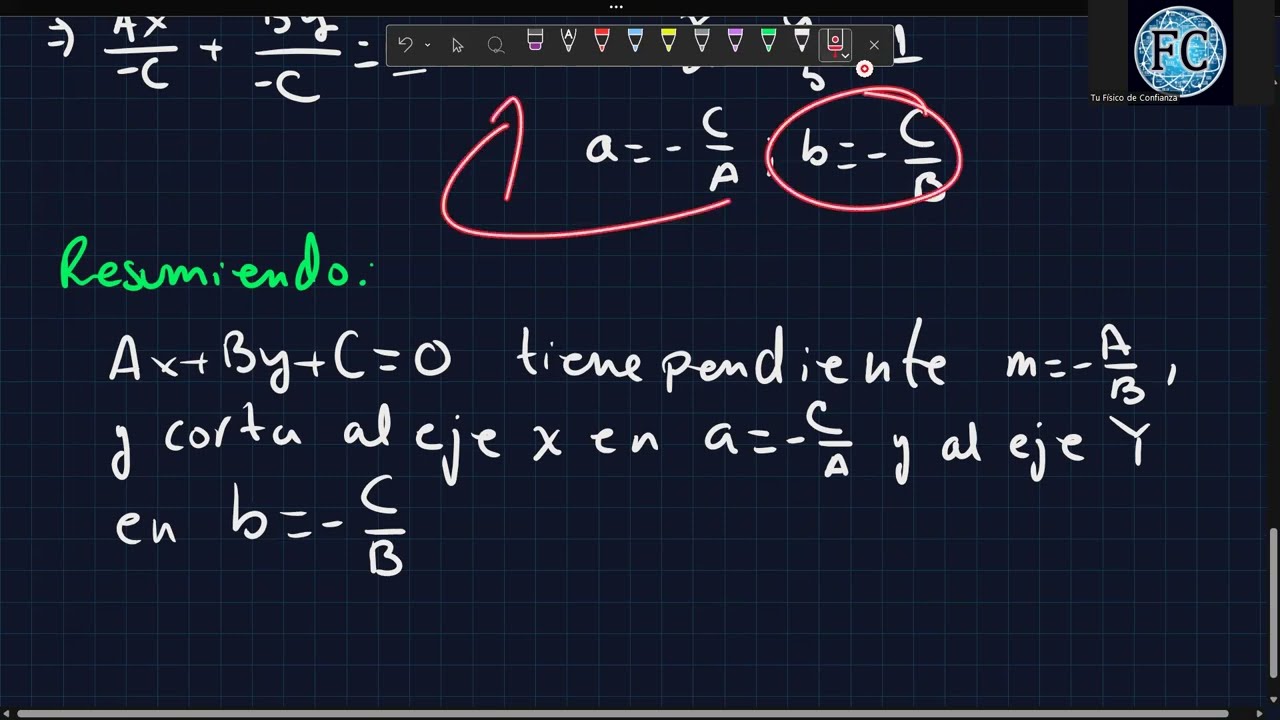 ⇒ Ax/-C + By/-C =
a = - C/A ; b = - C/B
FC
Tu Físico de Confianza
Resumiendo:
Ax+By+C=0 tiene pendiente m=-A/B,
y corta al eje x en a=-C/A y al eje Y
en b=-C/B